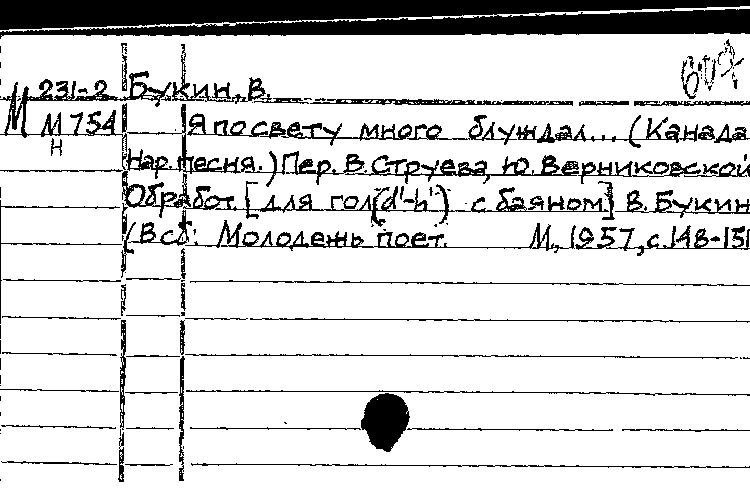 607
М 231-2 Букин, В.
М 754 Я по свету много блуждал... (Канада
Н
Нар. песня.) Пер. В. Струева, Ю. Верниковской
Обработ. [для гол. (d'-h') с баяном] В. Букин
(В сб: Молодежь поет. М., 1957, с. 148-151